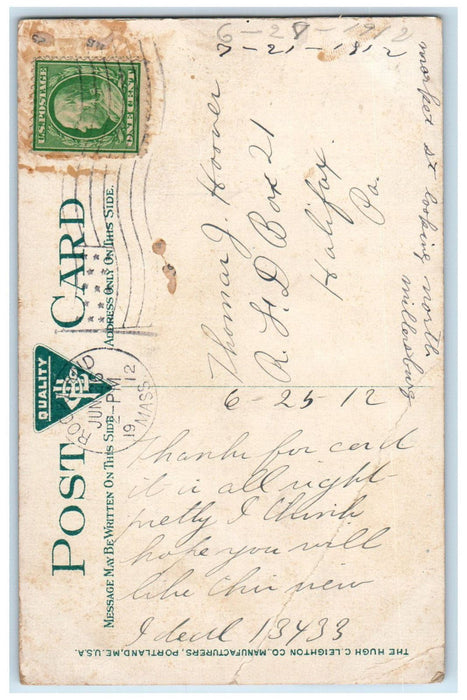 6-28-1912
7-21-1912
market st looking north
millersburg
U.S. POSTAGE
ONE CENT
POST CARD
QUALITY
MESSAGE MAY BE WRITTEN ON THIS SIDE.
ADDRESS ONLY ON THIS SIDE.
ROCKLAND
JUN
2-PM
1912
MASS.
Thomas J. Hoover
R. F. D Box 21
Halifax.
Pa.
6-25 12
Thanks for card
it is all right
pretty I think
hope you will
like this view
Ideal 13433
THE HUGH C. LEIGHTON CO. MANUFACTURERS, PORTLAND, ME. U.S.A.